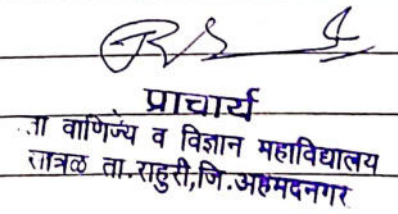 प्राचार्य
ा वाणिज्य व विज्ञान महाविद्यालय
सात्रळ ता.राहुरी,जि.अहमदनगर